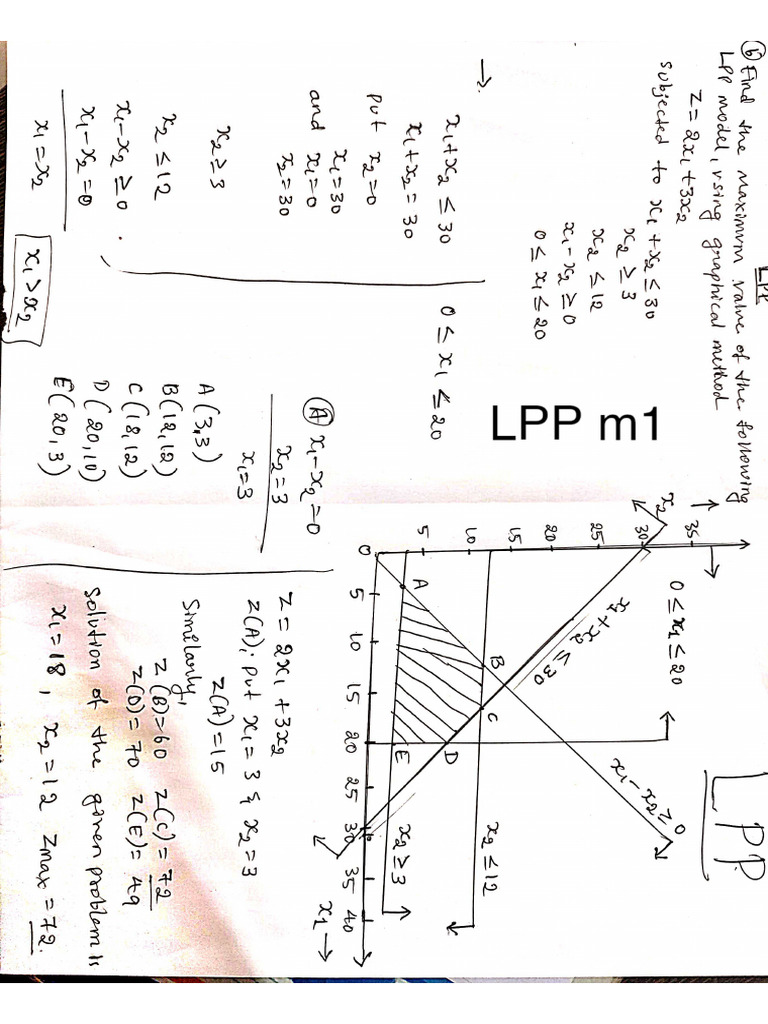 LPP
(b) Find the maximum value of the following
LPP model, using graphical method
Z = 2x1 + 3x2
subjected to x1 + x2 ≤ 30
x2 ≥ 3
x2 ≤ 12
x1 - x2 ≥ 0
0 ≤ x1 ≤ 20
→.
x1 + x2 ≤ 30
x1 + x2 = 30
put x2 = 0
x1 = 30
and x1 = 0
x2 = 30
x2 ≥ 3
x2 ≤ 12
x1 - x2 ≥ 0
x1 - x2 = 0
x1 = x2
x1 > x2
0 ≤ x1 ≤ 20
(A) x1 - x2 = 0
x2 = 3
x1 = 3
A(3,3)
B(12,12)
C(18,12)
D(20,10)
E(20,3)
LPP m1
LPP
x2
35
30
25
20
15
10
5
0
5 10 15 20 25 30 35 40
x1 →
0 ≤ x1 ≤ 20
x1 + x2 ≤ 30
x1 - x2 ≥ 0
x2 ≤ 12
x2 ≥ 3
A
B
C
D
E
Z = 2x1 + 3x2
Z(A); put x1 = 3 & x2 = 3
Z(A) = 15
Similarly,
Z(B) = 60 Z(C) = 72
Z(D) = 70 Z(E) = 49
Solution of the given problem is
x1 = 18, x2 = 12 Zmax = 72.